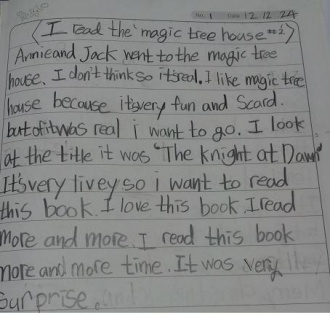 No. 1 Date 12 12 24
〈I read the "magic tree house #2"〉
Annie and Jack went to the magic tree
house. I don't think so it's real. I like magic tree
house because it's very fun and Scard.
but of it was real i want to go. I look
at the title it was "The Knight at Dawn"
It's very livey so i want to read
this book. I love this book. I read
more and more. I read this book
more and more time. It was very
surprise.